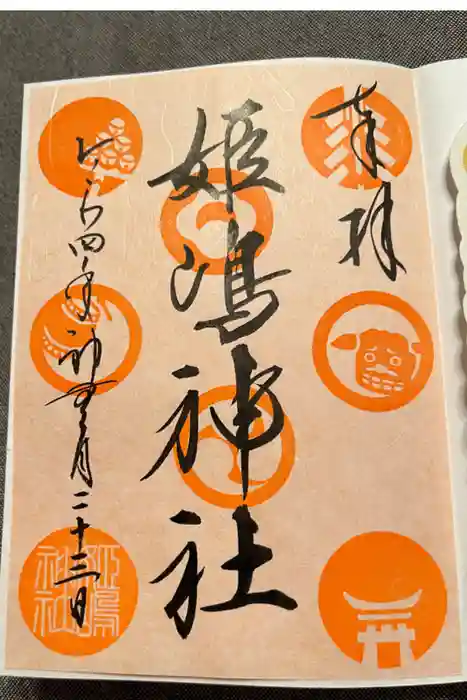 奉拝
姫嶋神社
令和四年神無月二十三日
姫嶋神社